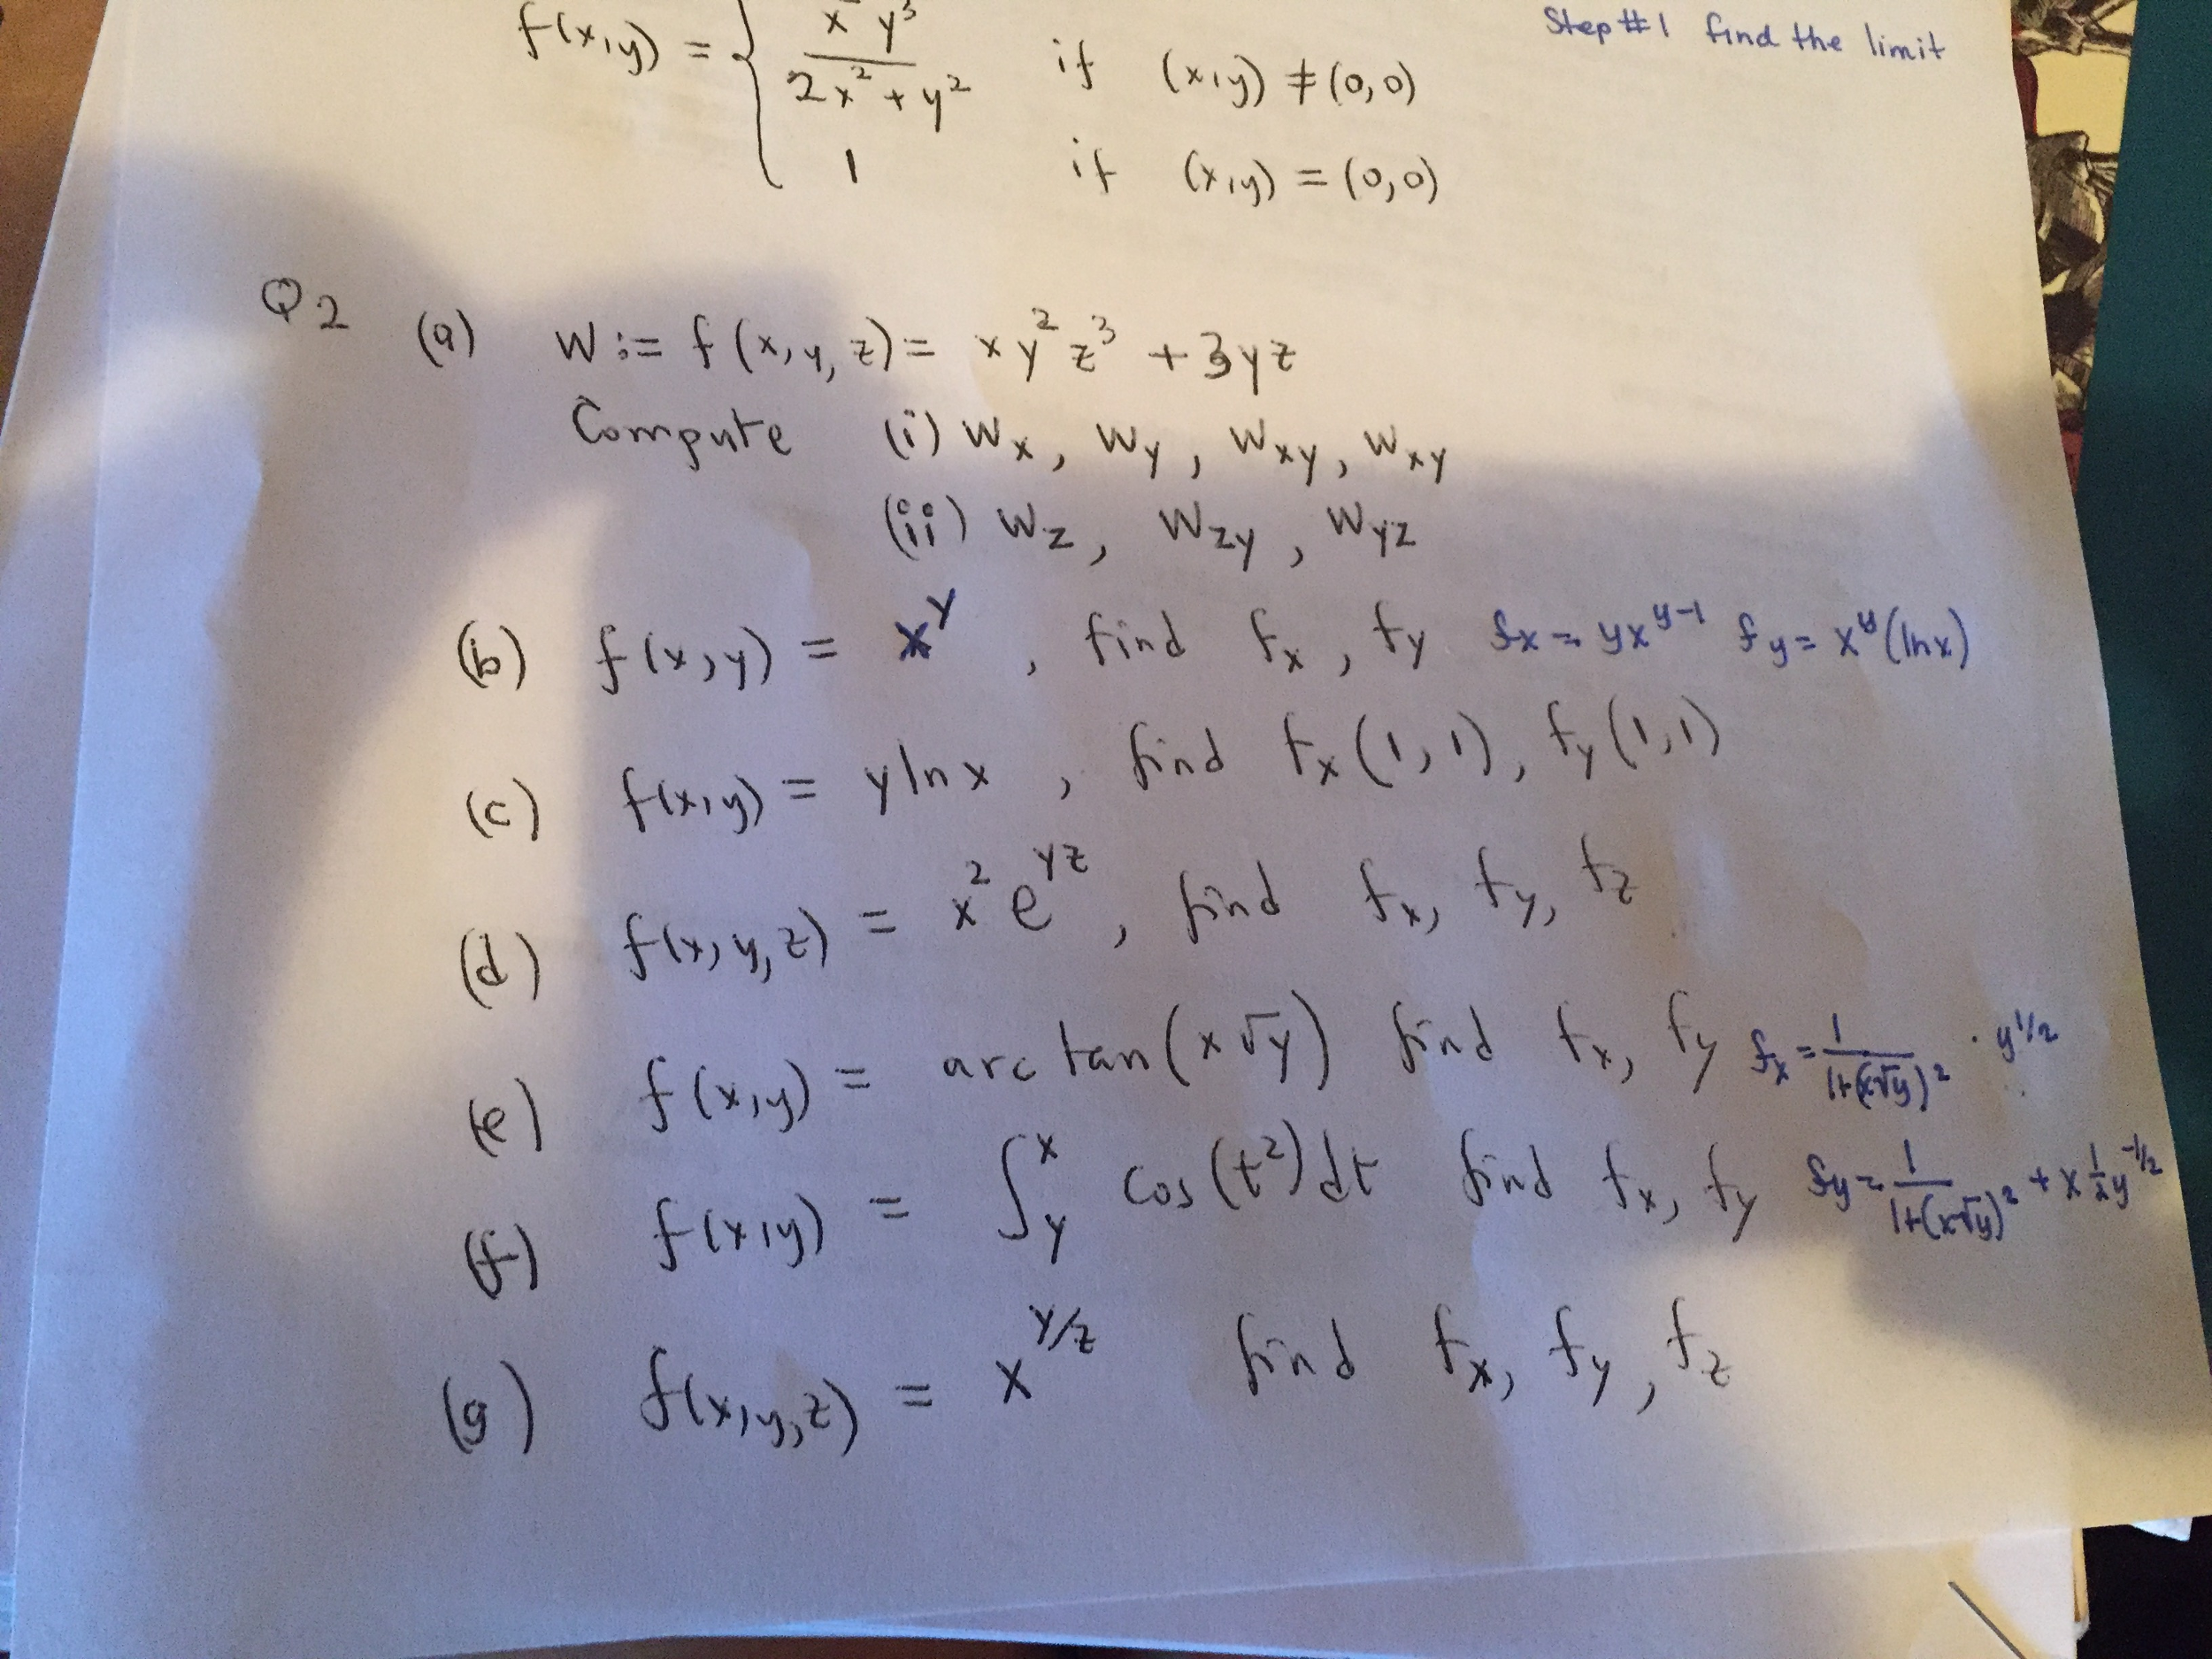 Step #1 find the limit
f(x,y) = { x² y³ / 2x² + y² if (x,y) ≠ (0,0)
1 if (x,y) = (0,0)
Q2 (a) W := f(x, y, z) = xy²z³ + 3yz
Compute (i) Wx, Wy, Wxy, Wxy
(ii) Wz, Wzy, Wyz
(b) f(x,y) = x^y, find fx, fy fx = yx^(y-1) fy = x^y(ln x)
(c) f(x,y) = y ln x, find fx(1,1), fy(1,1)
(d) f(x,y,z) = x² e^(yz), find fx, fy, fz
(e) f(x,y) = arc tan(x√y) find fx, fy fx = 1/(1+(x√y)²) · y^(1/2)
(f) f(x,y) = ∫_y^x cos(t²)dt find fx, fy fy = 1/(1+(x√y)²) + x ½ y^(-1/2)
(g) f(x,y,z) = x^(y/z) find fx, fy, fz